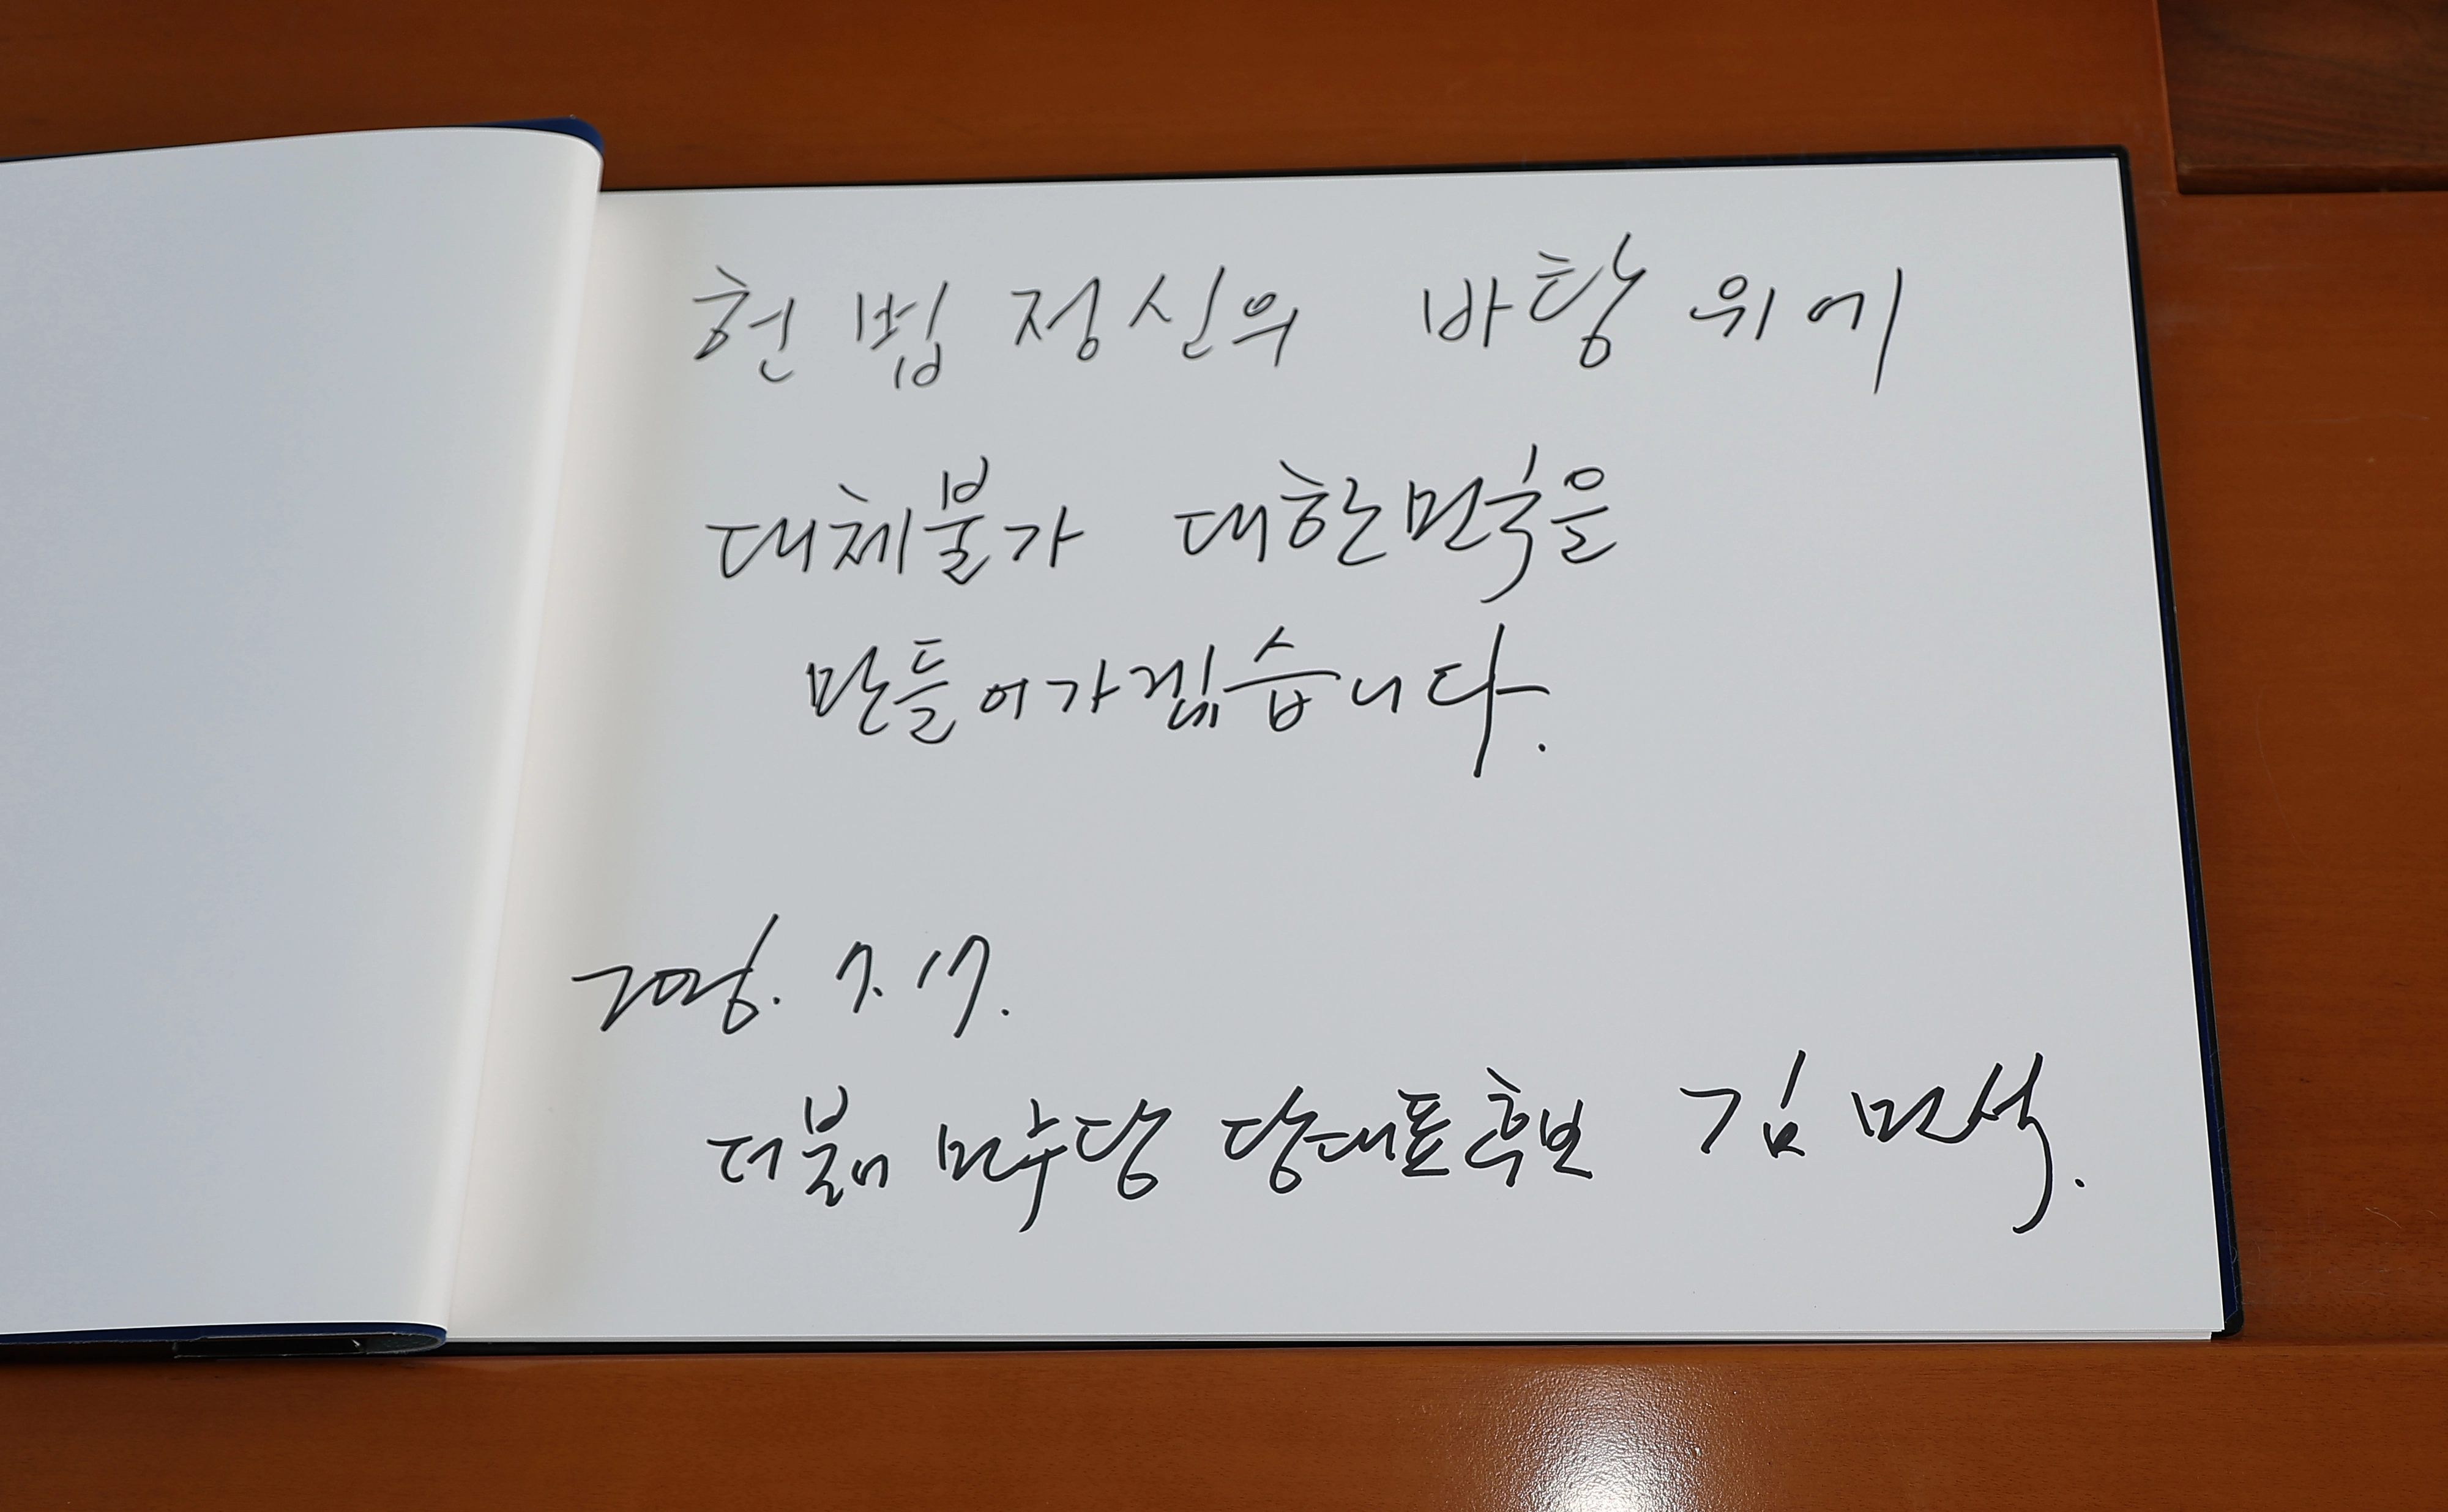 헌법정신의 바탕 위에
대체불가 대한민국을
만들어가겠습니다.
2026. 7. 17.
더불어 민주당 당대표후보 김민석.